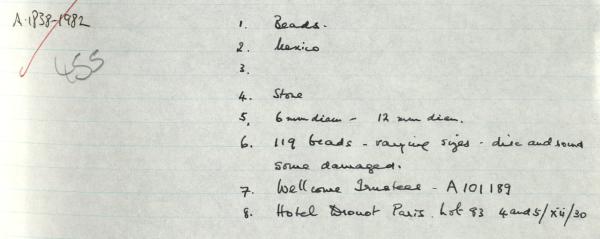 A.1838-1982
455
1. Beads.
2. Mexico
3.
4. Stone
5. 6 mm diam - 12 mm diam.
6. 119 beads - varying sizes - disc and round
some damaged.
7. Wellcome Trustees - A101189
8. Hotel Drouot Paris. Lot 93 4 and 5/xii/30